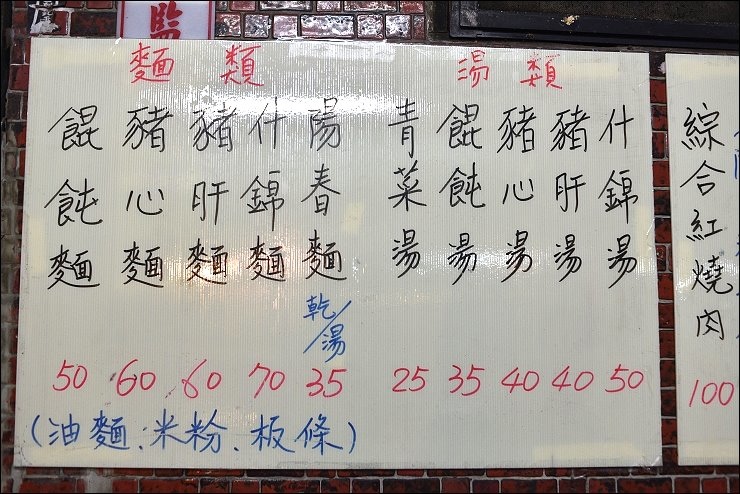 監
麵類
湯類
什錦湯
豬肝湯
豬心湯
餛飩湯
青菜湯
陽春麵
乾/湯
什錦麵
豬肝麵
豬心麵
餛飩麵
50 60 60 70 35 25 35 40 40 50
(油麵、米粉、板條)
綜合紅燒肉
100